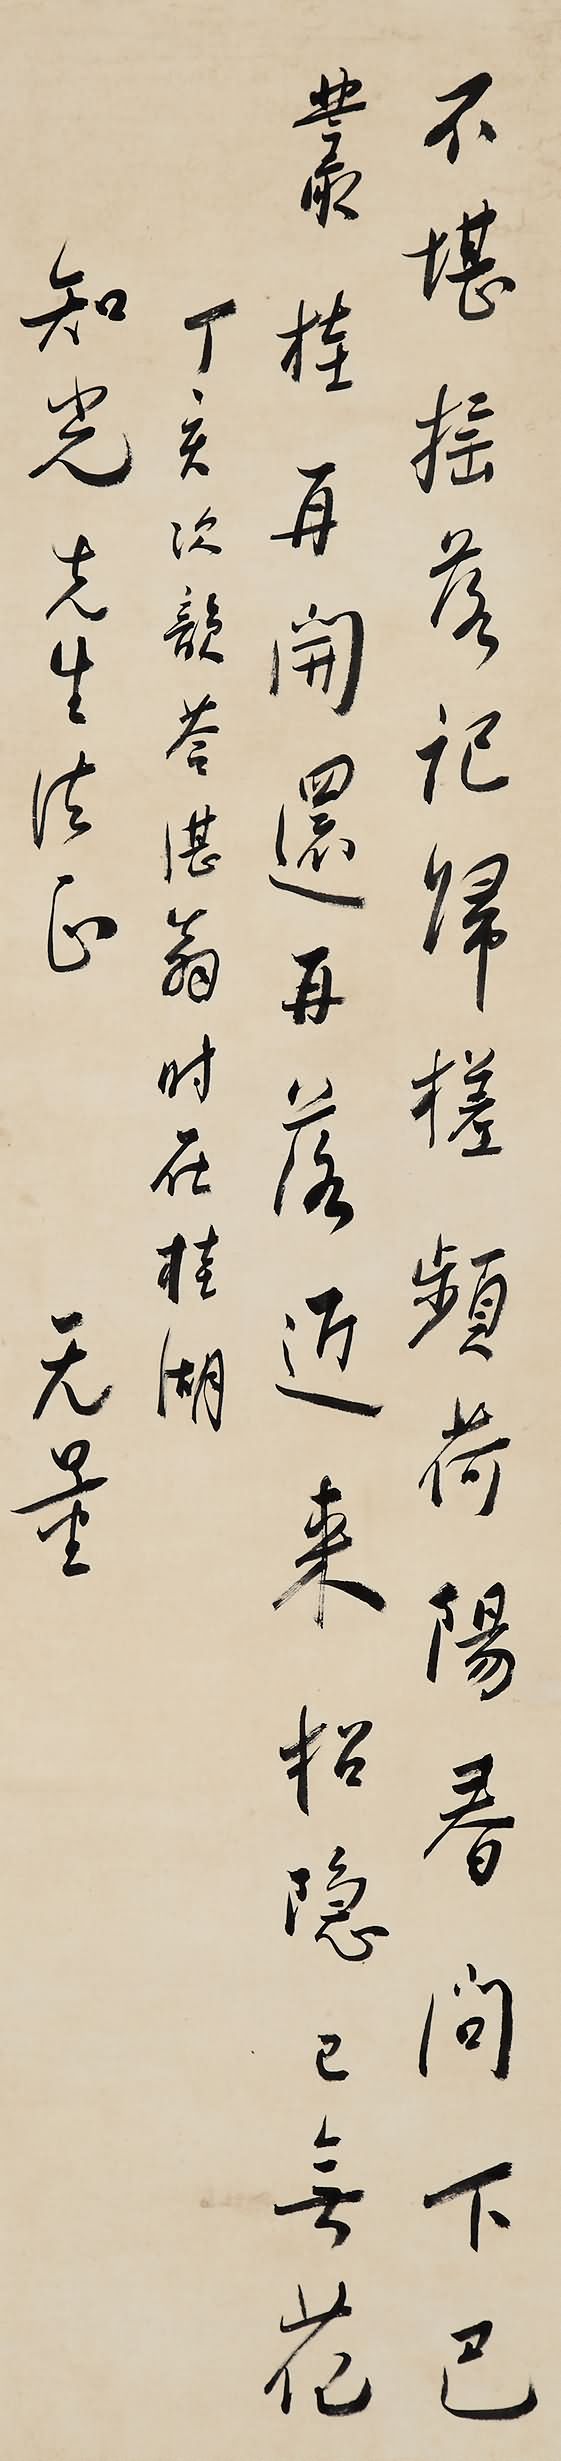 不堪搖落記歸槎頻荷陽春問下巴
叢桂再開還再落近來招隐已無花
丁亥次韻荅湛翁时在桂湖
知光先生法正 无量